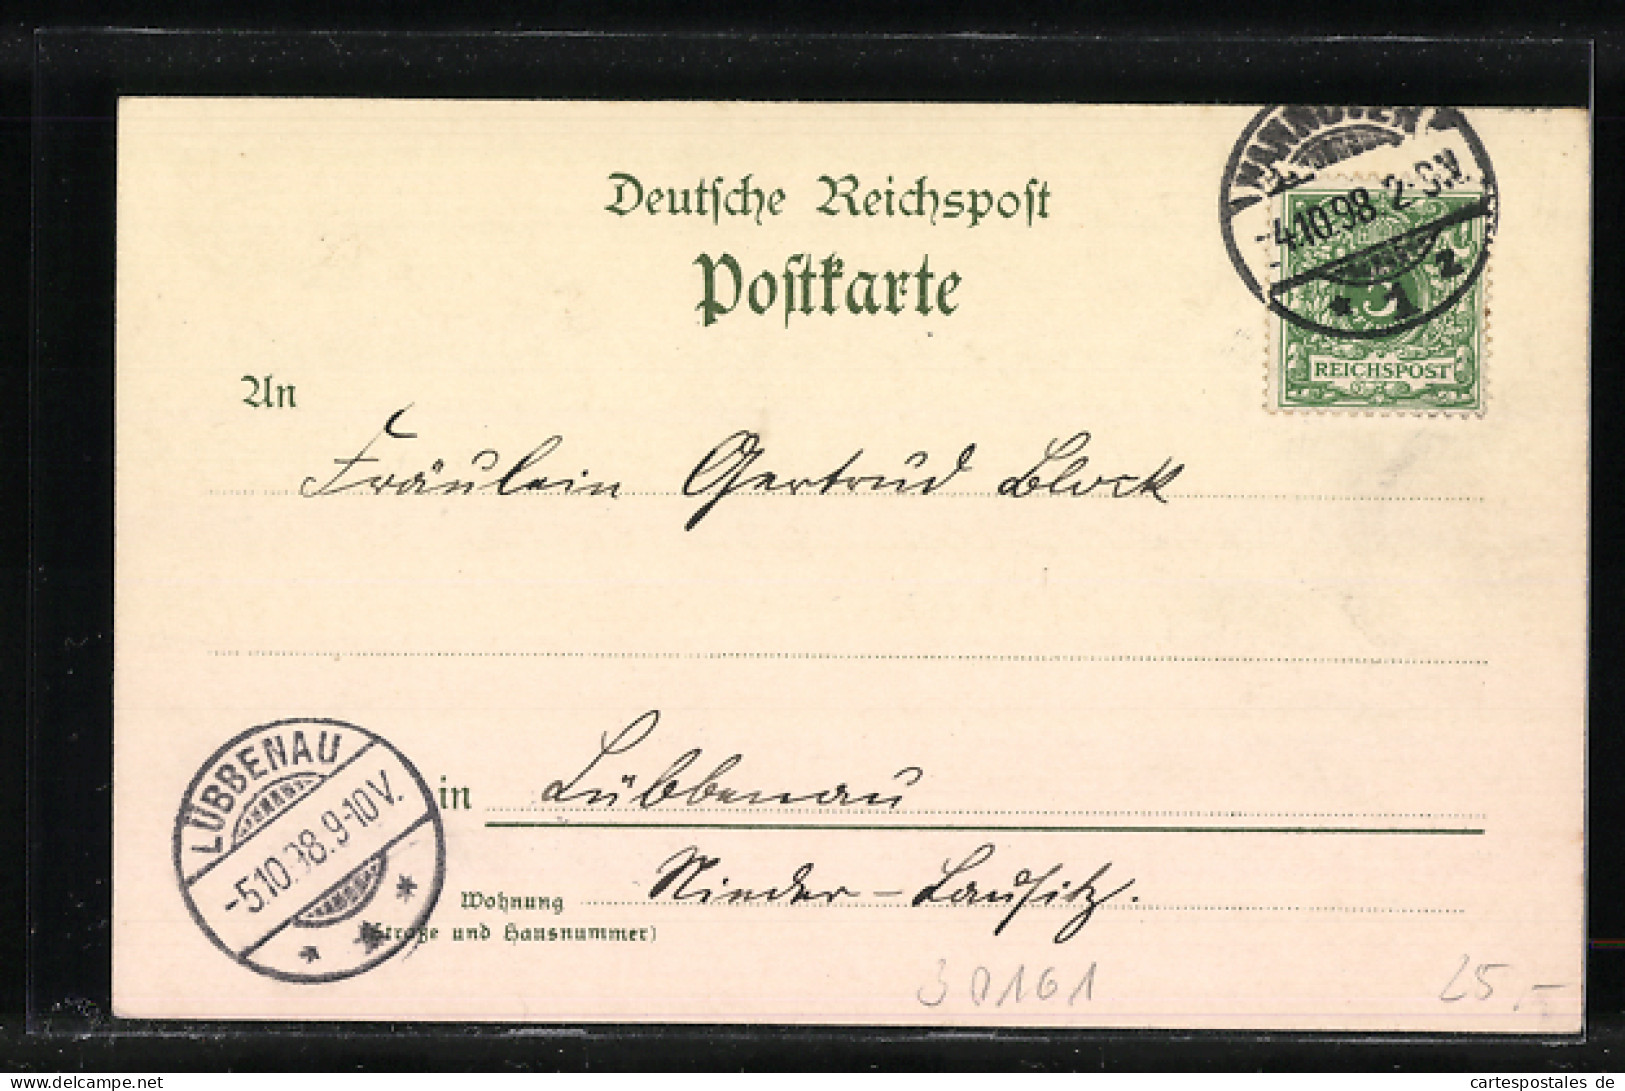 Deutsche Reichspost
Postkarte
HANNOVER
-4.10.98 2-3V.
* 1 z
5
REICHSPOST
An
Fräulein Gertrud Block
LÜBBENAU
-5.10.98.9-10V.
* * *
in Lübbenau
Wohnung Nieder-Lausitz.
(Straße und Hausnummer)
30161
25,-
www.delcampe.net
cartespostales de